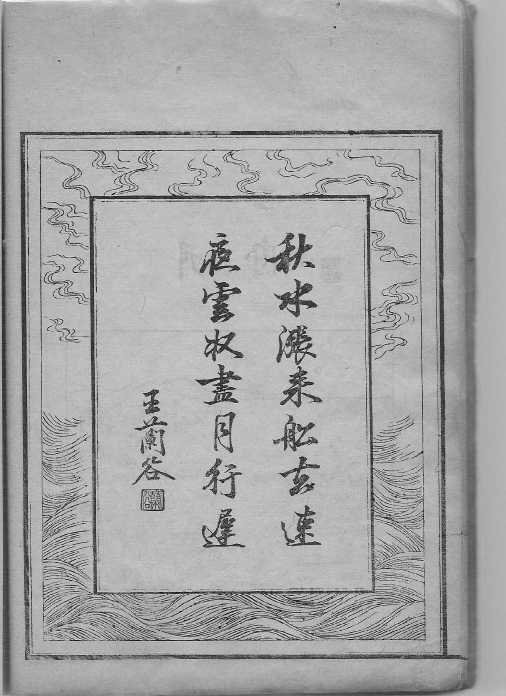 秋水漲来船去速
夜雲収盡月行遲
王蘭谷